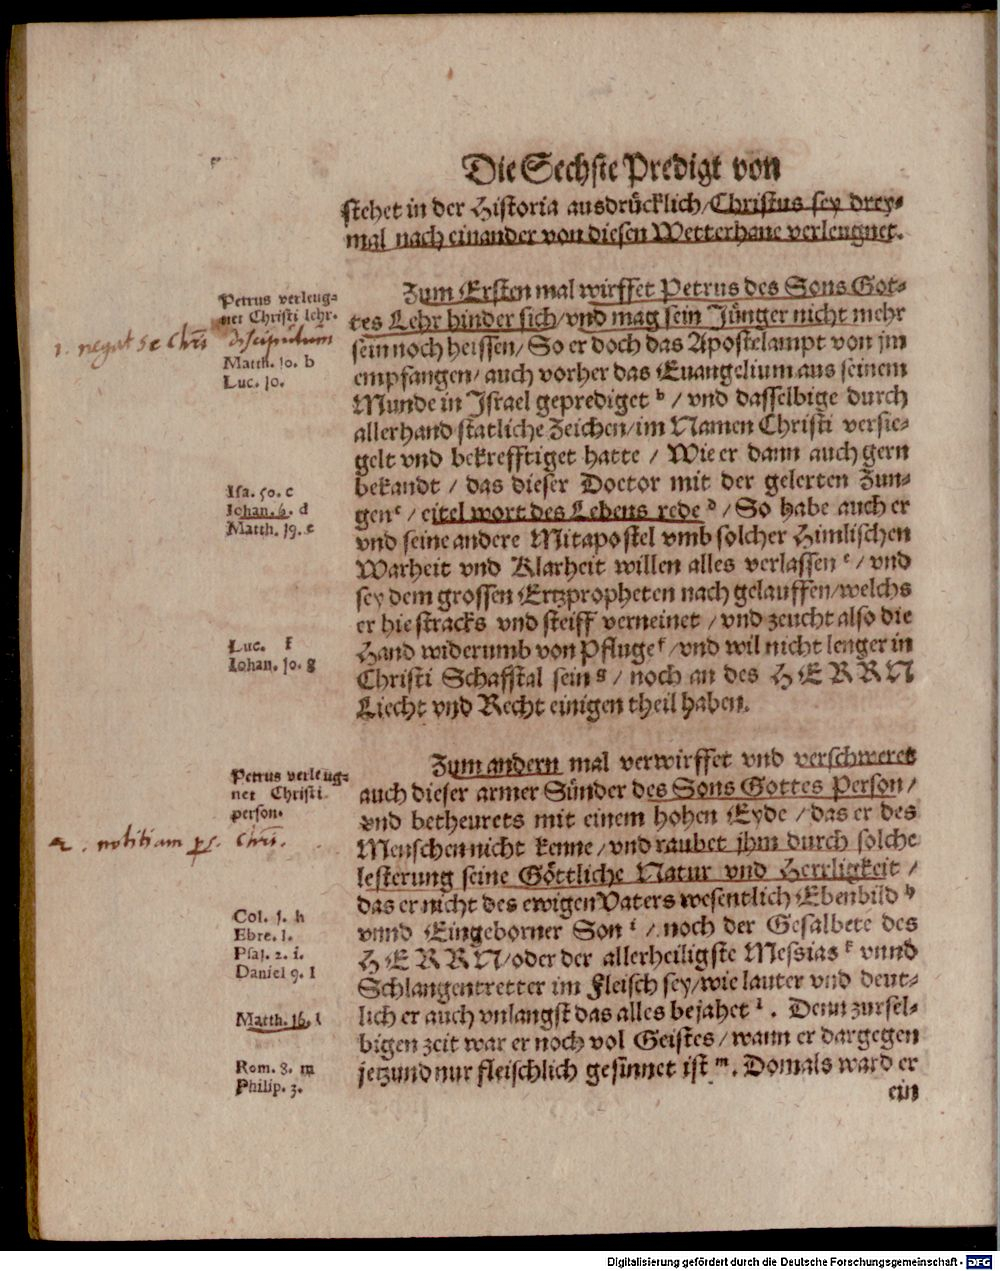 Die Sechste Predigt von
stehet in der Historia ausdrücklich/Christus sey drey-
mal nach einander von diesen Wetterhane verleugnet.
Petrus verleug-
net Christi lehr.
1. negat se Chri discipulum
Matth. 10. b
Luc. 10.
Zum Ersten mal wirffet Petrus des Sons Got-
tes Lehr hinder sich/vnd mag sein Jünger nicht mehr
sein noch heissen/ So er doch das Apostelampt von jm
empfangen/ auch vorher das Euangelium aus seinem
Munde in Israel geprediget b / vnd dasselbige durch
allerhand statliche Zeichen/im Namen Christi versie-
gelt vnd bekrefftiget hatte / Wie er dann auch gern
bekandt / das dieser Doctor mit der gelerten Zun-
gen c / eitel wort des Lebens rede d / So habe auch er
vnd seine andere Mitapostel vmb solcher Himlischen
Warheit vnd Klarheit willen alles verlassen e / vnd
sey dem grossen Ertzpropheten nach gelauffen/welchs
er hie stracks vnd steiff verneinet / vnd zeucht also die
Hand widerumb von Pfluge f / vnd wil nicht lenger in
Christi Schafstal sein g / noch an des HERRN
Liecht vnd Recht einigen theil haben.
Isa. 50. c
Iohan. 6. d
Matth. 19. e
Luc. f
Iohan. 10. g
Petrus verleug-
net Christi
person.
2. notitiam Chri.
Zum andern mal verwirffet vnd verschweret
auch dieser armer Sünder des Sons Gottes Person/
vnd betheurets mit einem hohen Eyde / das er des
Menschen nicht kenne / vnd raubet jhm durch solche
lesterung seine Göttliche Natur vnd Herrligkeit /
das er nicht des ewigen Vaters wesentlich Ebenbild h
vnnd Eingeborner Son i / noch der Gesalbete des
HERRN/oder der allerheiligste Messias k vnnd
Schlangentretter im Fleisch sey/wie lauter vnd deut-
lich er auch vnlangst das alles bejahet l . Denn zursel-
bigen zeit war er noch vol Geistes / wann er dargegen
jetzund nur fleischlich gesinnet ist m. Domals ward er
ein
Col. 1. h
Ebre. 1.
Psal. 2. i.
Daniel 9. 1
Matth. 16. l
Rom. 8. m
Philip. 3.
Digitalisierung gefördert durch die Deutsche Forschungsgemeinschaft - DFG